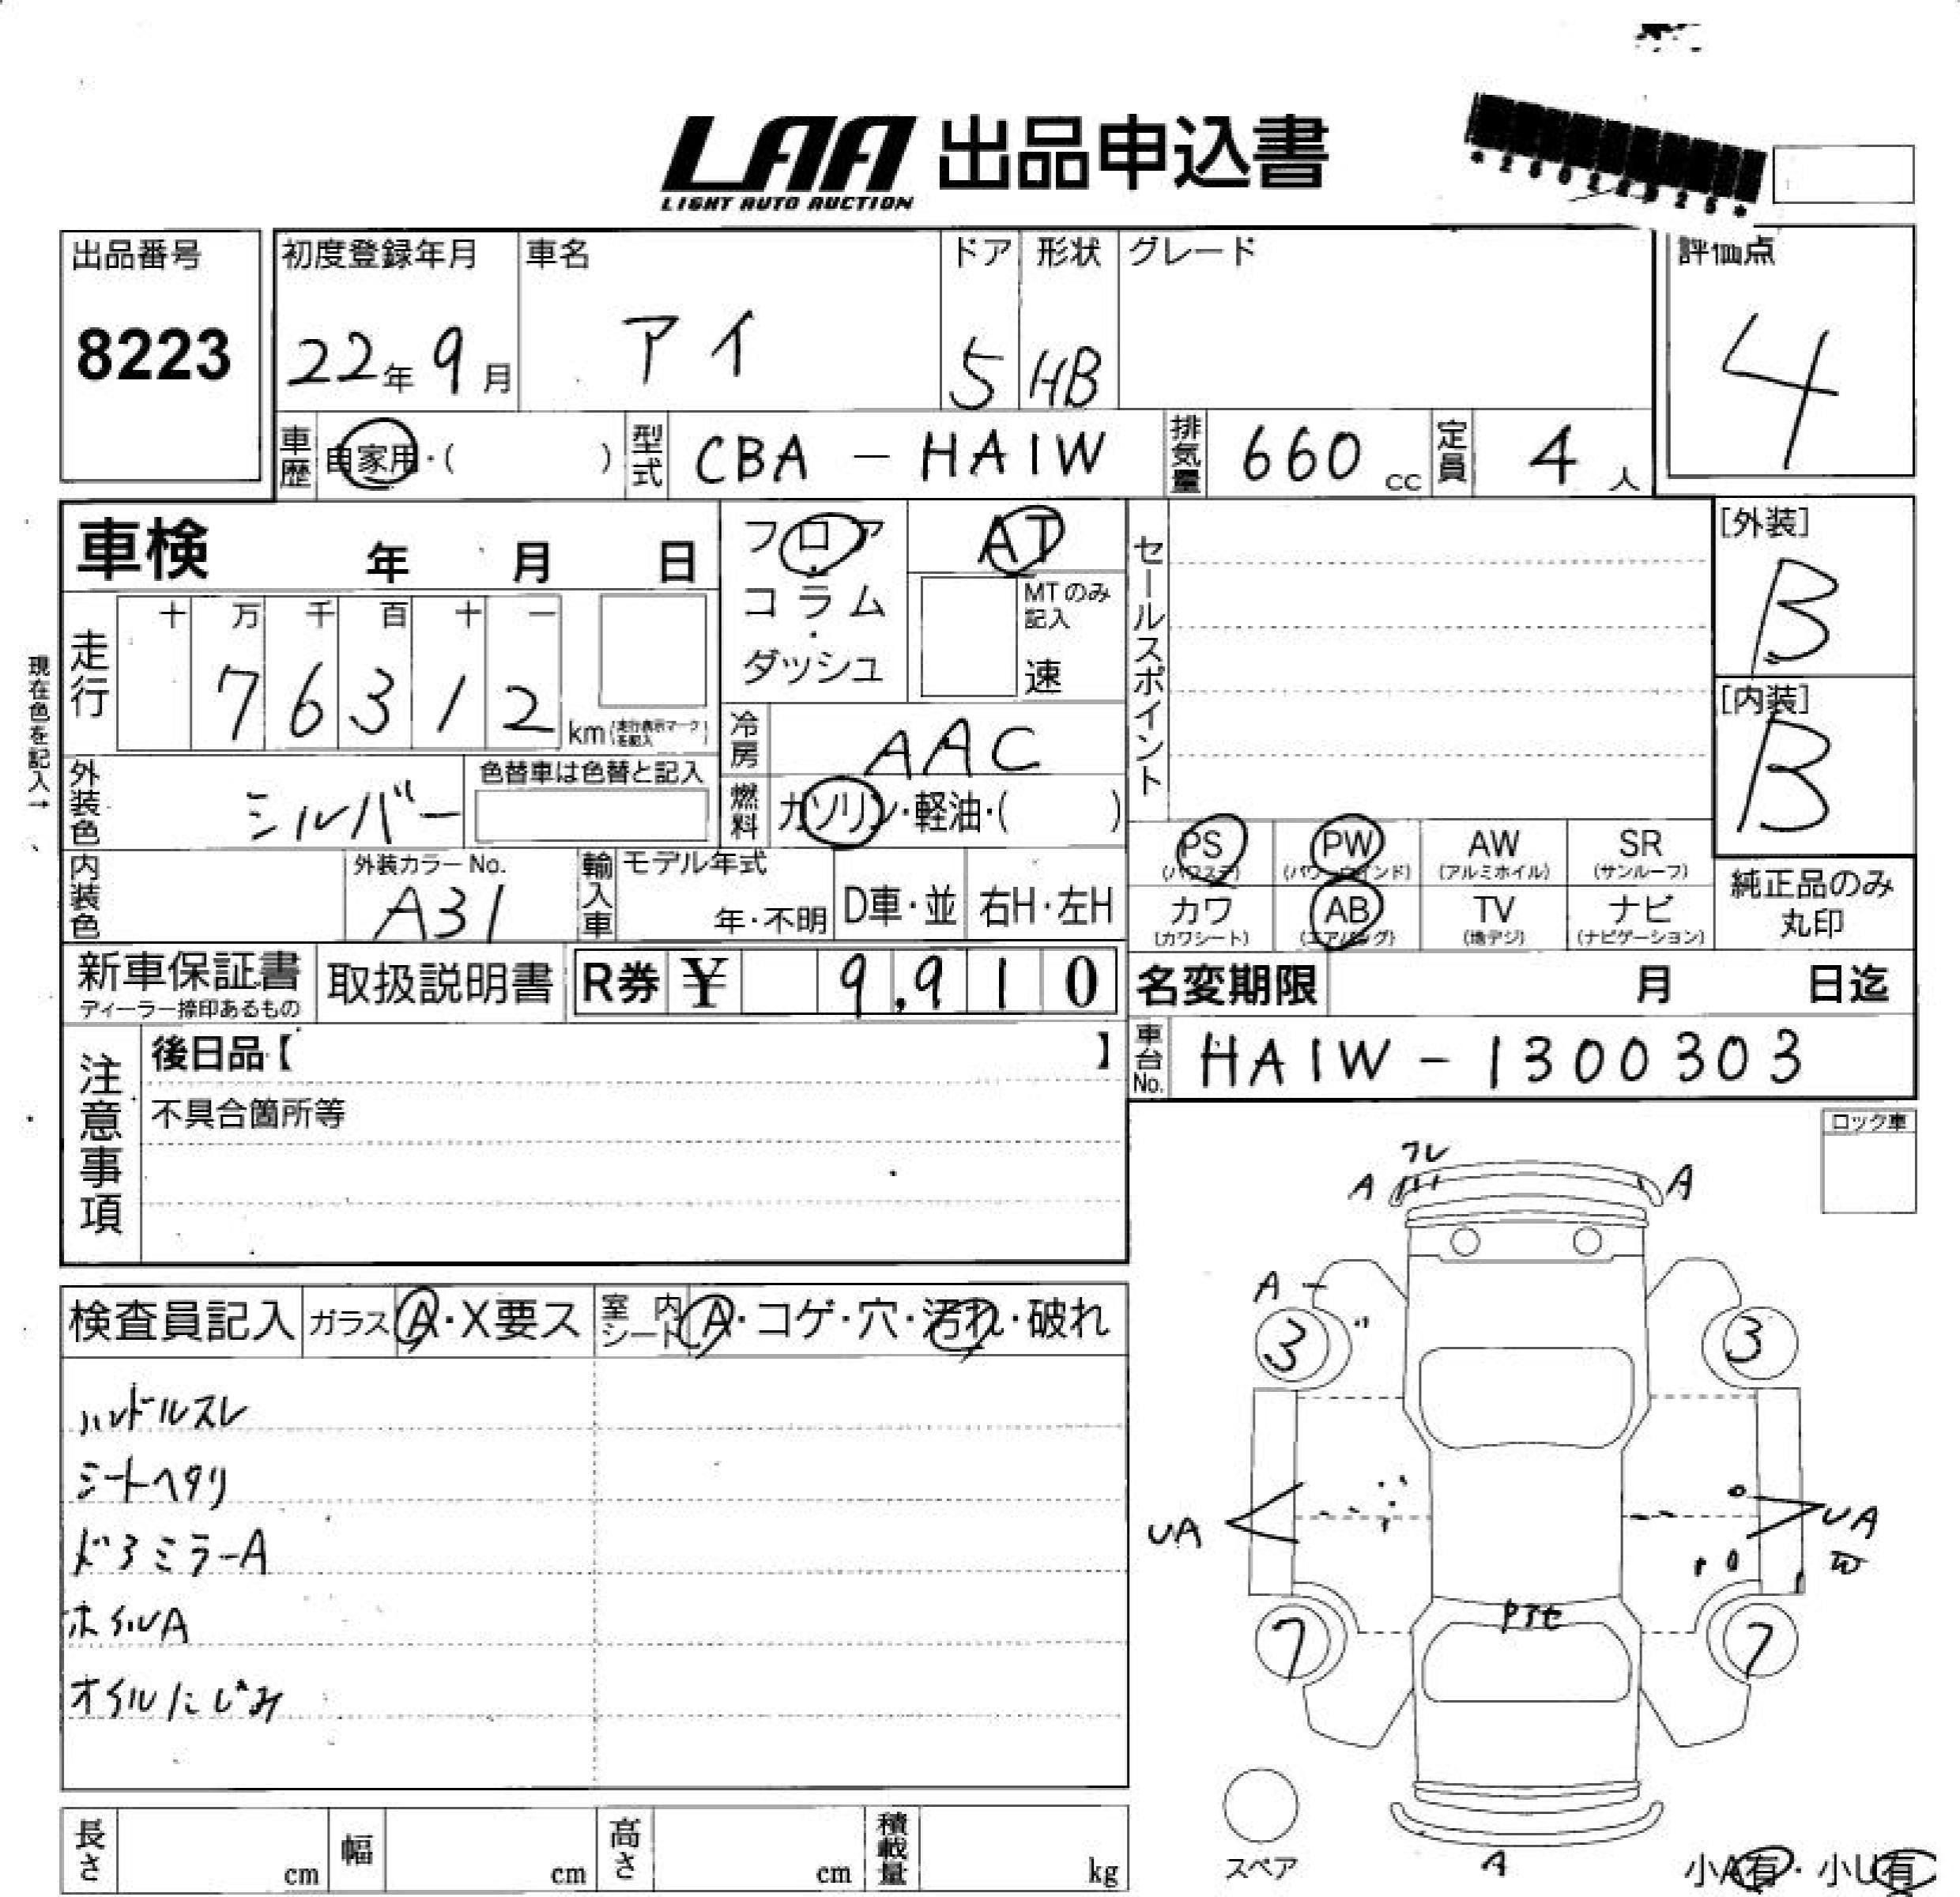 LAA 出品申込書
LIGHT AUTO AUCTION
出品番号
8223
初度登録年月
22年9月
車名
アイ
ドア
5
形状
HB
グレード
評価点
4
車歴
自家用・( )
型式
CBA - HA1W
排気量
660 cc
定員
4 人
車検 年 月 日
フロア・コラム・ダッシュ
AT
MTのみ記入
速
セールスポイント
[外装]
B
[内装]
B
現在色を記入→
走行
十 万 千 百 十 一
7 6 3 1 2
km (走行表示マークを記入)
冷房
AAC
外装色
シルバー
色替車は色替と記入
燃料
ガソリン・軽油・( )
内装色
外装カラーNo.
A31
輸入車
モデル年式
年・不明
D車・並
右H・左H
PS (パワステ)
PW (パワーウインド)
AW (アルミホイル)
SR (サンルーフ)
カワ (カワシート)
AB (エアバッグ)
TV (地デジ)
ナビ (ナビゲーション)
純正品のみ
丸印
新車保証書
ディーラー捺印あるもの
取扱説明書
R券 ¥ 9,910
名変期限 月 日迄
注意事項
後日品【 】
不具合箇所等
車台No.
HA1W-1300303
ロック車
フレ
A A
A
3 3
UA UA
7 7
検査員記入
ガラス A・X要ス
室内シート A・コゲ・穴・汚れ・破れ
ハンドルスレ
シートヘタリ
ドアミラーA
ホイルA
オイルにじみ
長さ cm
幅 cm
高さ cm
積載量 kg
スペア
A
小A有・小U有